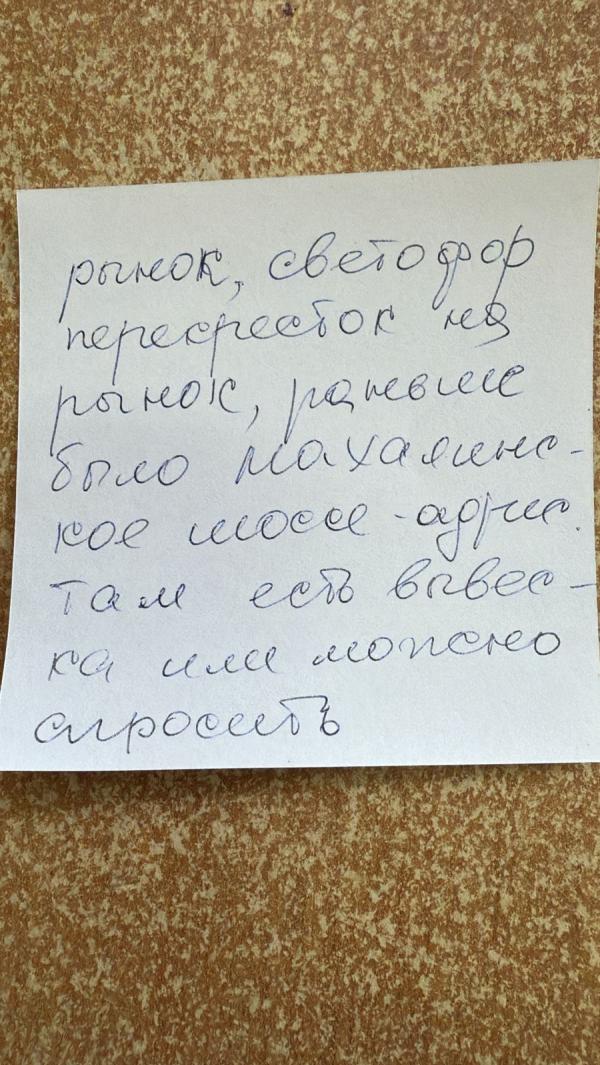 рынок, светофор
перекресток на
рынок, раньше
было Махалинс-
кое шоссе - адрес.
там есть вывес-
ка или можно
спросить